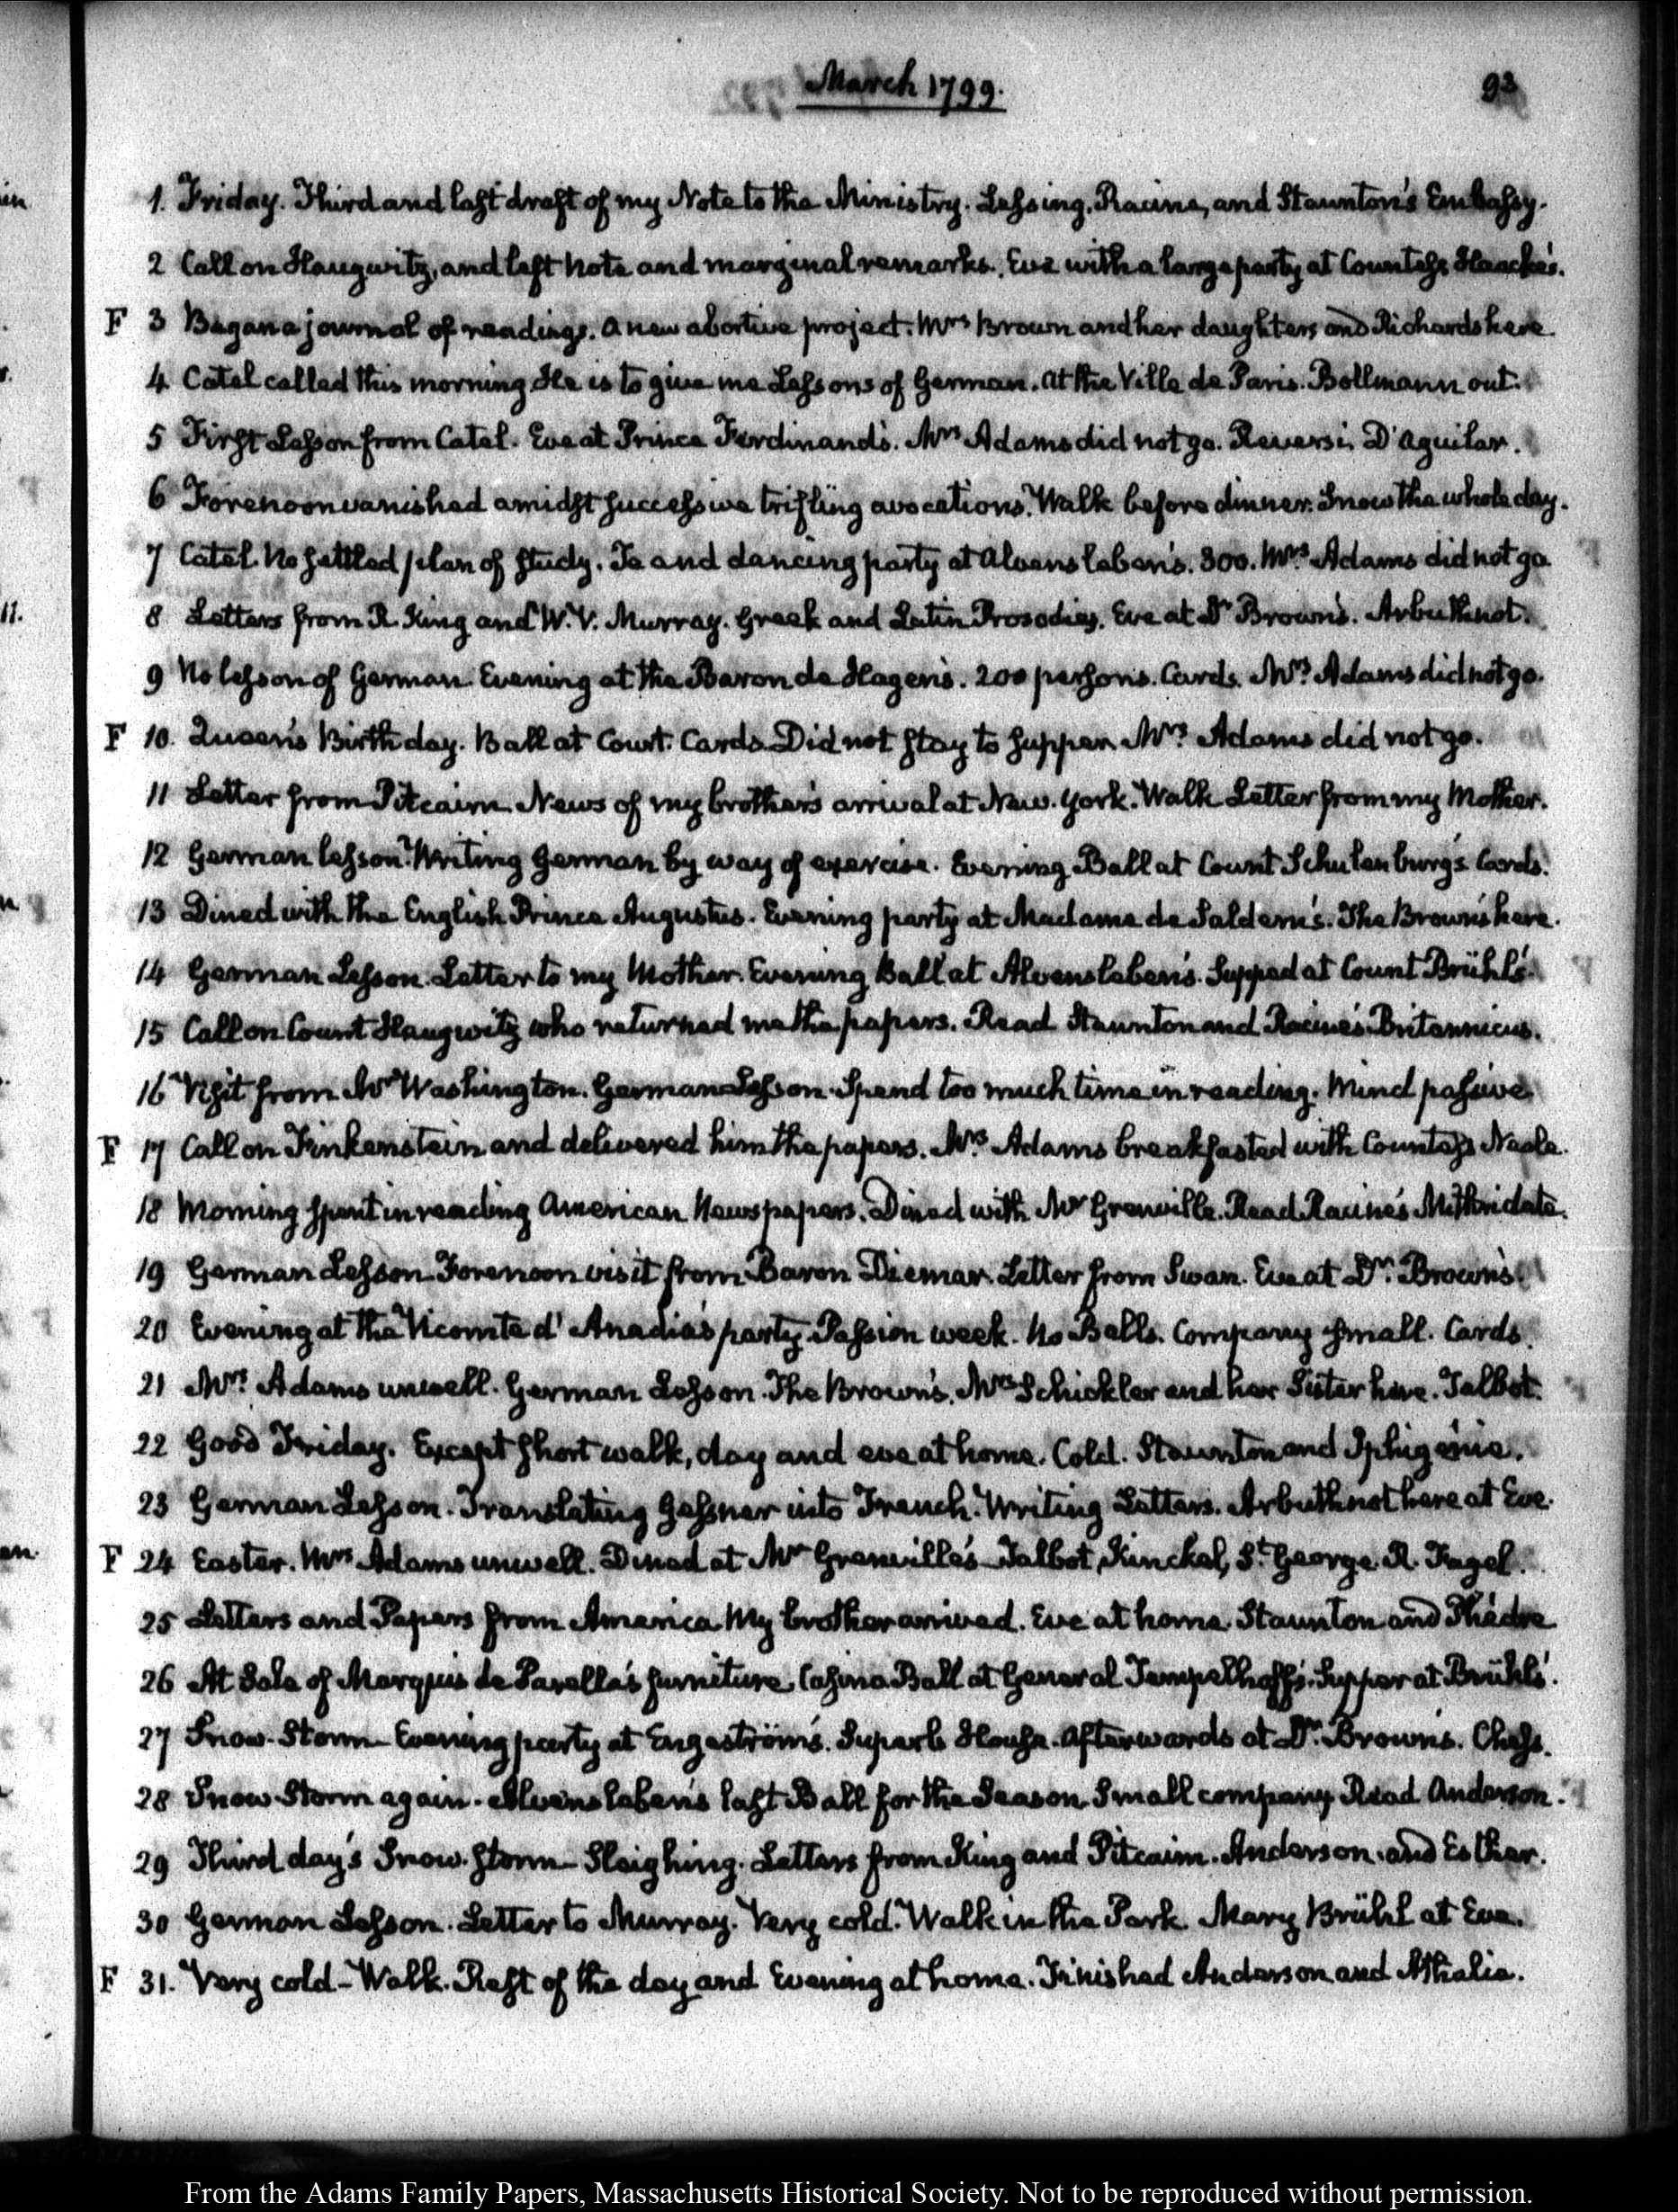 March 1799.
93
1. Friday. Third and last draft of my Note to the Ministry. Lessing, Racine, and Staunton's Embassy.
2 Call on Haugwitz, and left Note and marginal remarks. Eve with a large party at Countess Haacke's.
F 3 Began a journal of readings. A new abortive project. Mrs Brown and her daughters and Richards here.
4 Catel called this morning. He is to give me Lessons of German. At the Ville de Paris. Bollmann out.
5 First Lesson from Catel. Eve at Prince Ferdinand's. Mrs Adams did not go. Reversi. D'Aguilar.
6 Forenoon vanished amidst successive trifling avocations. Walk before dinner. Snow the whole day.
7 Catel. No settled plan of study. Tea and dancing party at Alvensleben's. 300. Mrs Adams did not go.
8 Letters from R. King and W. V. Murray. Greek and Latin Prosodies. Eve at Dr Brown's. Arbuthnot.
9 No lesson of German. Evening at the Baron de Hagen's. 200 persons. Cards. Mrs Adams did not go.
F 10. Queen's Birth day. Ball at Court. Cards. Did not stay to supper. Mrs Adams did not go.
11 Letter from Pitcairn. News of my brother's arrival at New-York. Walk. Letter from my Mother.
12 German lesson. Writing German by way of exercise. Evening Ball at Count Schulenburg's. Cards.
13 Dined with the English Prince Augustus. Evening party at Madame de Saldern's. The Brown's here.
14 German Lesson. Letter to my Mother. Evening Ball at Alvensleben's. Supped at Count Brühl's.
15 Call on Count Haugwitz who returned me the papers. Read Staunton and Racine's Britannicus.
16 Visit from Mr Washington. German Lesson. Spend too much time in reading. Mind passive
F 17 Call on Finkenstein and delivered him the papers. Mrs Adams breakfasted with Countess Neale.
18 Morning spent in reading American Newspapers. Dined with Mr Grenville. Read Racine's Mithridate.
19 German Lesson. Forenoon visit from Baron Diemar. Letter from Swan. Eve at Dr. Brown's.
20 Evening at the Vicomte d'Anadia's party. Passion week. No Balls. Company small. Cards.
21 Mrs Adams unwell. German Lesson. The Brown's. Mrs Schickler and her Sister here. Talbot.
22 Good Friday. Except short walk, day and eve at home. Cold. Staunton and Iphigénie.
23 German Lesson. Translating Gessner into French. Writing Letters. Arbuthnot here at Eve.
F 24 Easter. Mrs Adams unwell. Dined at Mr Grenville's. Talbot, Kinckel, St George. R. Fagel.
25 Letters and Papers from America. My brother arrived. Eve at home. Staunton and Phédre
26 At Sale of Marquis de Parella's furniture. Casino Ball at General Tempelhoff's. Supper at Brühl's.
27 Snow-Storm- Evening party at Engeström's. Superb House. Afterwards at Dr. Brown's. Chess.
28 Snow Storm again. Alvensleben's last Ball for the Season. Small company. Read Anderson.
29 Third day's Snow-storm- Sleighing. Letters from King and Pitcairn. Anderson and Esther.
30 German Lesson. Letter to Murray. Very cold. Walk in the Park. Mary Brühl at Eve.
F 31. Very cold- Walk. Rest of the day and Evening at home. Finished Anderson and Athalie.
From the Adams Family Papers, Massachusetts Historical Society. Not to be reproduced without permission.